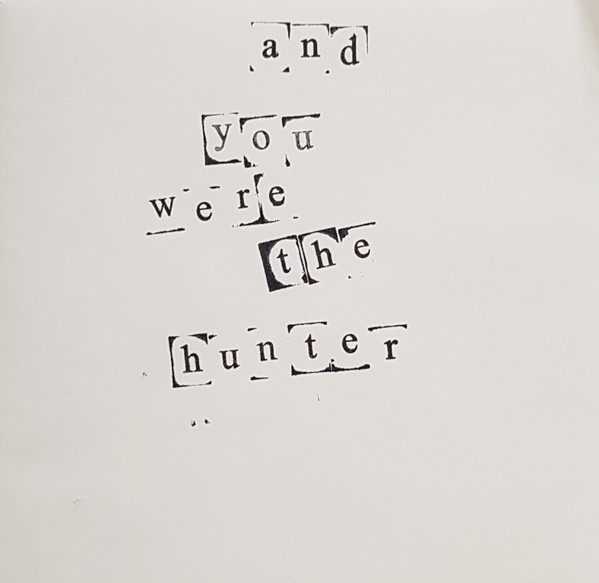 and
you
were
the
hunter